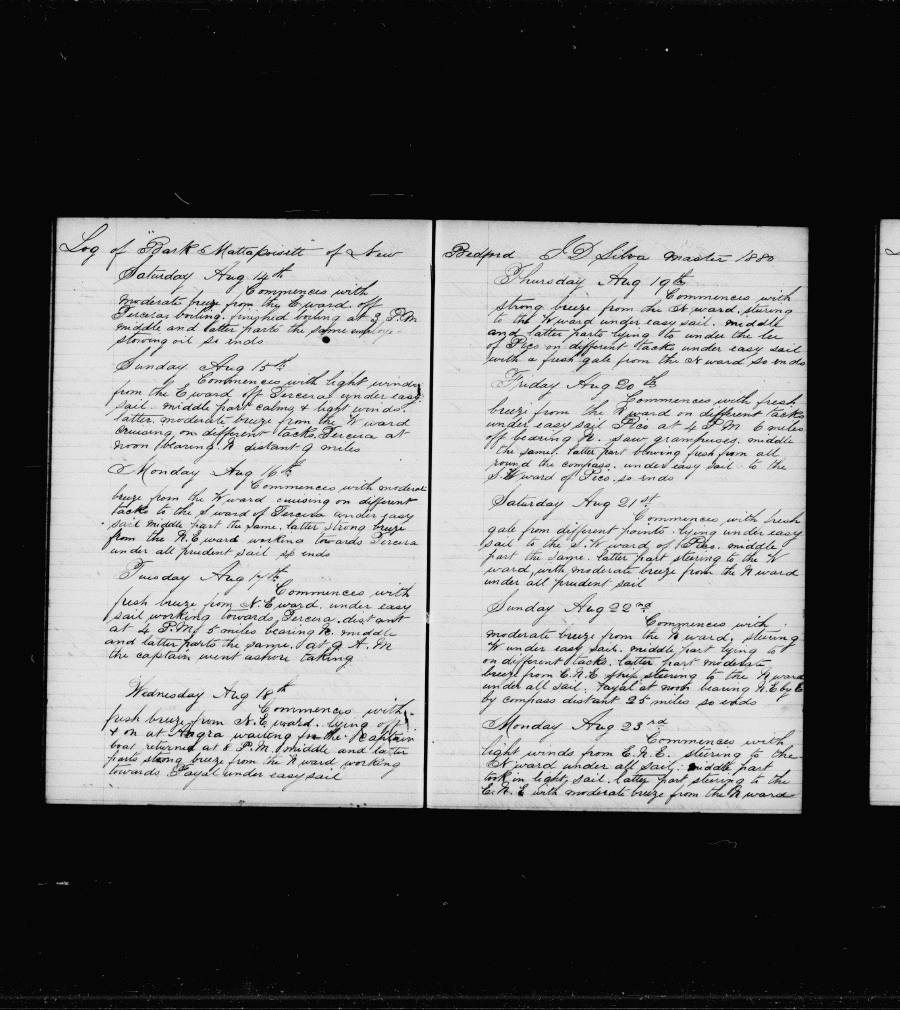 Log of "Bark Mattapoisett" of New
Saturday Aug 14th
Commences with
moderate breeze from the E ward off
Terceras boiling. finished boiling at 3 P.M
middle and latter parts the same employ-
stowing oil so ends
Sunday Aug 15th
Commences with light winds
from the E ward off Tercera under easy
sail. middle part calms & light winds.
latter. moderate breeze from the W ward
Cruising on different tacks. Tercera at
noon bearing N distant 9 miles
Monday Aug 16th
Commences with moderat
breeze from the W ward cruising on different
tacks to the S ward of Tercera under easy
sail middle part the same. latter strong breeze
from the N.E ward working towards Tercera
under all prudent sail so ends
Tuesday Aug 17th
Commences with
fresh breeze from N.E ward. under easy
sail working towards Tercera. distant
at 4 P.M. 5 miles bearing N. middle
and latter parts the same. at 9 A.M
the captain went ashore taking
Wednesday Aug 18th
Commences with
fresh breeze from N.E ward. lying off
& on at Angra waiting for the Captain
boat returned at 8 P.M. middle and latter
parts strong breeze from the N ward working
towards Fayal under easy sail
Bedford J D Silva master 1880
Thursday Aug 19th
Commences with
strong breeze from the N ward. stering
to the W ward under easy sail. middle
and latter parts lying to under the lee
of Pico on different tacks under easy sail
with a fresh gale from the N ward so ends
Friday Aug 20th
Commences with fresh
breeze from the N ward on different tacks
under easy sail Pico at 4 P.M 6 miles
off bearing N. saw grampuses. middle
the same. latter part blowing fresh from all
round the compass. under easy sail to the
S.W ward of Pico. so ends
Saturday Aug 21st
Commences with fresh
gale from different points. lying under easy
sail to the S.W ward of Pico. middle
part the same. latter part stering to the W
ward, with moderate breeze from the N ward
under all prudent sail
Sunday Aug 22nd
Commences with
moderate breeze from the N ward. stering
W under easy sail. middle part lying to
on different tacks. latter part moderate
breeze from E.N.E ship steering to the N ward
under all sail. Fayal at noon bearing N.E by E
by compass distant 25 miles so ends
Monday Aug 23rd
Commences with
light winds from E.N.E. stering to the
N ward under all sail. middle part
took in light sail. latter part stering to the
E.N.E with moderate breeze from the N ward